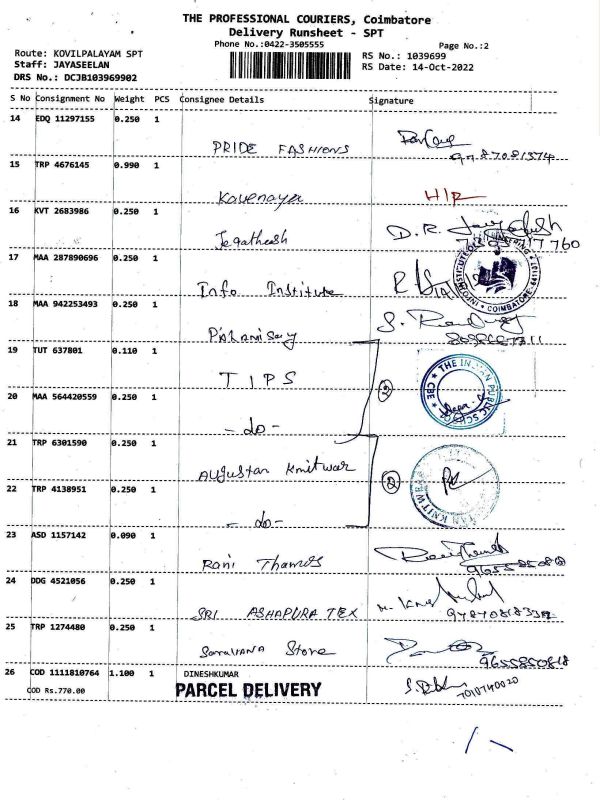 THE PROFESSIONAL COURIERS, Coimbatore
Delivery Runsheet - SPT
Phone No.:0422-3505555
Page No.:2
Route: KOVILPALAYAM SPT
Staff: JAYASEELAN
DRS No.: DCJB103969902
RS No.: 1039699
RS Date: 14-Oct-2022
S No Consignment No Weight PCS Consignee Details Signature
14 EDQ 11297155 0.250 1
PRIDE FASHIONS
15 TRP 4676145 0.990 1
Kavenaya H/R
16 KVT 2683986 0.250 1
Jegatheesh D.R.
17 MAA 287890696 0.250 1
Info Institute
COIMBATORE
18 MAA 942253493 0.250 1
Palanisay
19 TUT 637801 0.110 1
TIPS
2
THE INDIAN PUBLIC SCHOOL
CBE
20 MAA 564420559 0.250 1
- do -
21 TRP 6301590 0.250 1
Augustan Knitwar
2
22 TRP 4138951 0.250 1
- do -
23 ASD 1157142 0.090 1
Rani Thamos
24 DDG 4521056 0.250 1
SRI ASHAPURA TEX
25 TRP 1274480 0.250 1
Saravana Store
9655850818
26 COD 1111810764 1.100 1 DINESHKUMAR
COD Rs.770.00 PARCEL DELIVERY
7010740020